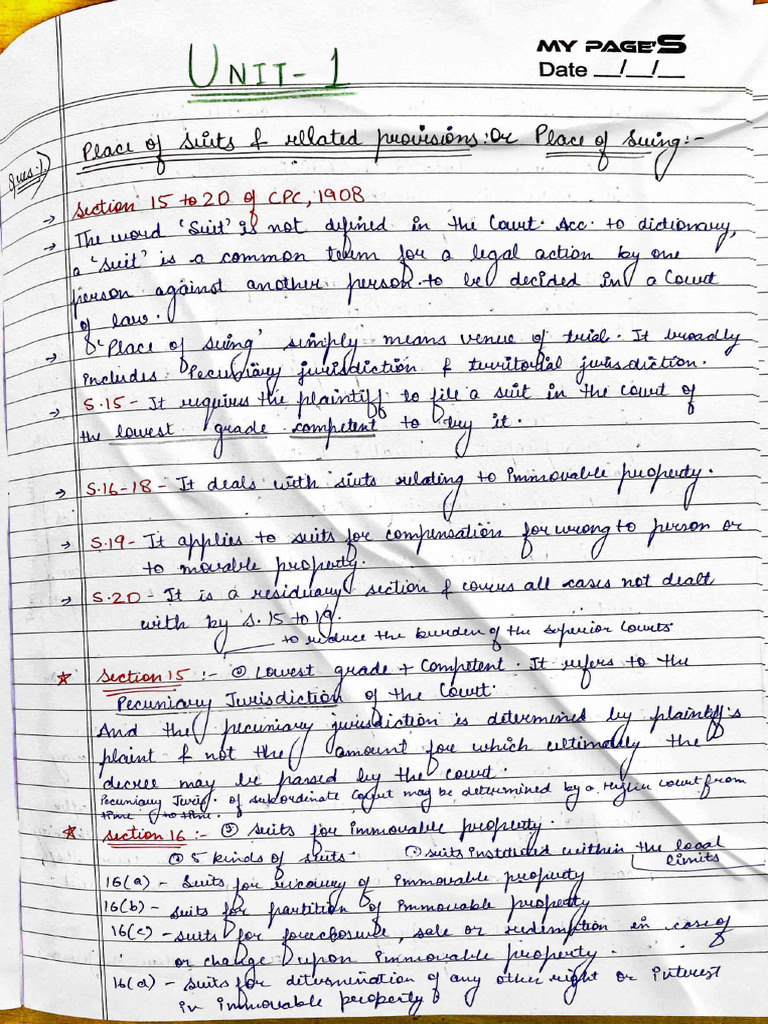 MY PAGE'S
Date __/__/__
UNIT-1
Ques:1)
Place of suits & rellated provisions: Or Place of suing:-
→ Section 15 to 20 of CPC, 1908
→ The word 'Suit' is not defined in the Court. Acc. to dictionary,
a 'suit' is a common term for a legal action by one
person against another person to be decided in a Court
of law.
→ 'Place of suing' simply means venue of trial. It broadly
includes Pecuniary jurisdiction & territorial jurisdiction.
→ S.15- It requires the plaintiff to file a suit in the court of
the lowest grade competent to try it.
→ S.16-18- It deals with siuts relating to immovable property.
→ S.19- It applies to suits for compensation for wrong to person or
to movable property.
→ S.20- It is a residuary section & covers all cases not dealt
with by S.15 to 19.
to reduce the burden of the superior courts
★ Section 15 :- Lowest grade + Competent. It refers to the
Pecuniary Jurisdiction of the Court.
And the pecuniary jurisdiction is determined by plaintiff's
plaint & not the amount for which ultimately the
decree may be passed by the court.
Pecuniary Juris. of subordinate Court may be determined by a Higher Court from
time to time.
★ Section 16 :- suits for immovable property.
5 kinds of suits. suits instituted within the local
limits
16(a) - Suits for recovery of immovable property
16(b) - suits for partition of immovable property
16(c) - suits for foreclosure, sale or redemption in case of
or charge upon immovable property.
16(d) - suits for determination of any other right or interest
in immovable property